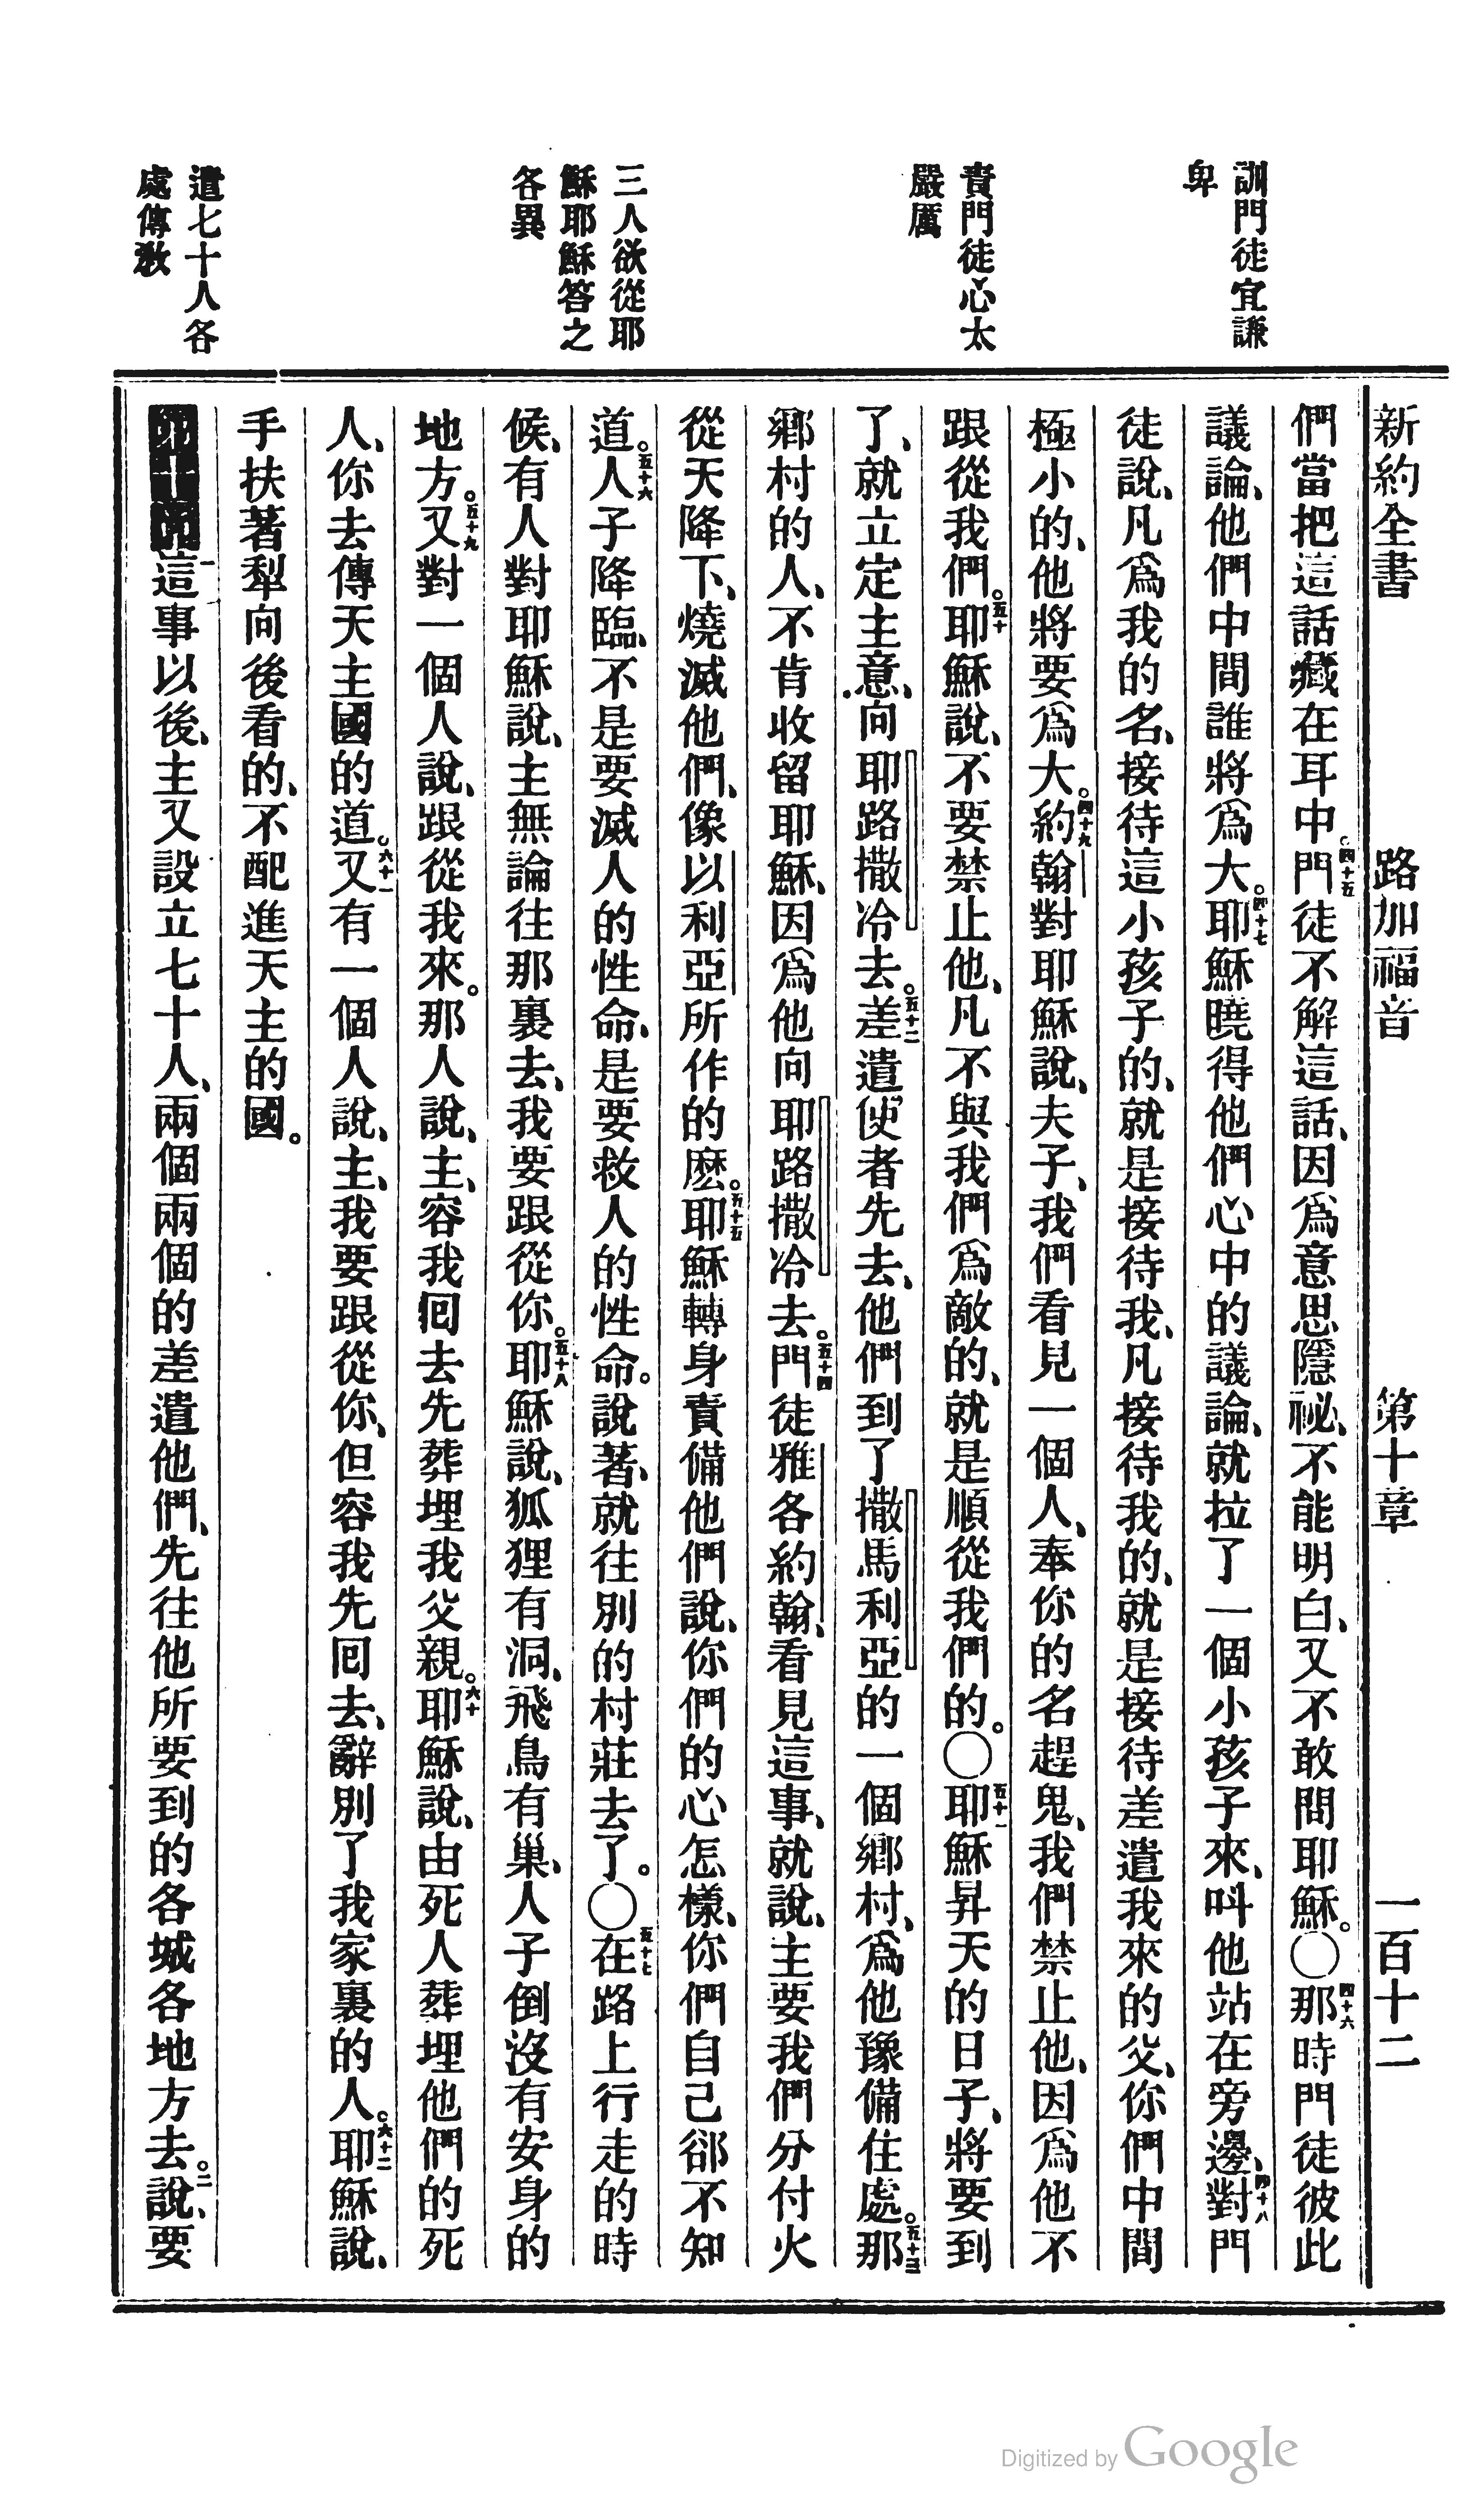 新約全書 路加福音 第十章 一百十二
訓門徒宜謙
卑
責門徒心太
嚴厲
三人欲從耶
穌耶穌答之
各異
遣七十人各
處傳教
們當把這話藏在耳中。四十五門徒不解這話、因爲意思隱祕、不能明白、又不敢問耶穌。〇四十六那時門徒彼此
議論、他們中間誰將爲大。四十七耶穌曉得他們心中的議論、就拉了一個小孩子來、呌他站在旁邊、四十八對門
徒說、凡爲我的名、接待這小孩子的、就是接待我、凡接待我的、就是接待差遣我來的父、你們中間
極小的、他將要爲大。四十九約翰對耶穌說、夫子、我們看見一個人、奉你的名趕鬼、我們禁止他、因爲他不
跟從我們。五十耶穌說、不要禁止他、凡不與我們爲敵的、就是順從我們的。〇五十一耶穌昇天的日子、將要到
了、就立定主意、向耶路撒冷去。五十二差遣使者先去、他們到了撒馬利亞的一個鄉村、爲他豫備住處。五十三那
鄉村的人、不肯收留耶穌、因爲他向耶路撒冷去。五十四門徒雅各約翰、看見這事、就說、主要我們分付火
從天降下、燒滅他們、像以利亞所作的麽。五十五耶穌轉身責備他們說、你們的心怎樣、你們自己郤不知
道。五十六人子降臨、不是要滅人的性命、是要救人的性命。說著、就往別的村莊去了。〇五十七在路上行走的時
候、有人對耶穌說、主無論往那裏去、我要跟從你。五十八耶穌說、狐狸有洞、飛鳥有巢、人子倒沒有安身的
地方。五十九又對一個人說、跟從我來。那人說、主、容我囘去先葬埋我父親。六十耶穌說、由死人葬埋他們的死
人、你去傳天主國的道。六十一又有一個人說、主、我要跟從你、但容我先囘去、辭別了我家裏的人。六十二耶穌說、
手扶著犁向後看的、不配進天主的國。
一這事以後、主又設立七十人、兩個兩個的差遣他們、先往他所要到的各城各地方去。二說、要
Digitized by Google